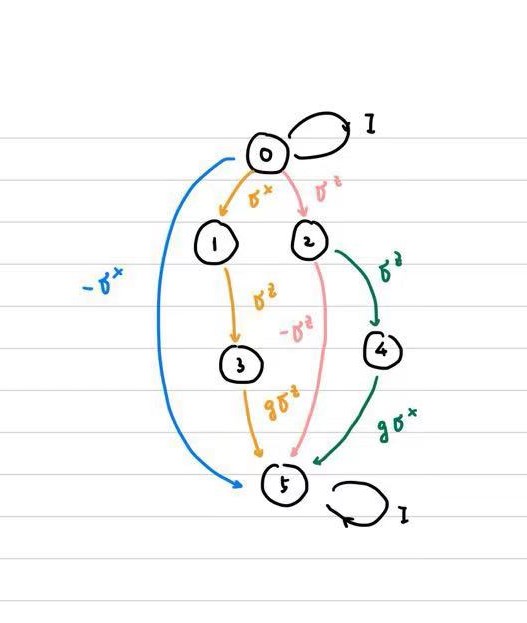 0
I
σˣ
σᶻ
1
2
-σˣ
σᶻ
σᶻ
-σᶻ
3
4
gσᶻ
gσˣ
5
I